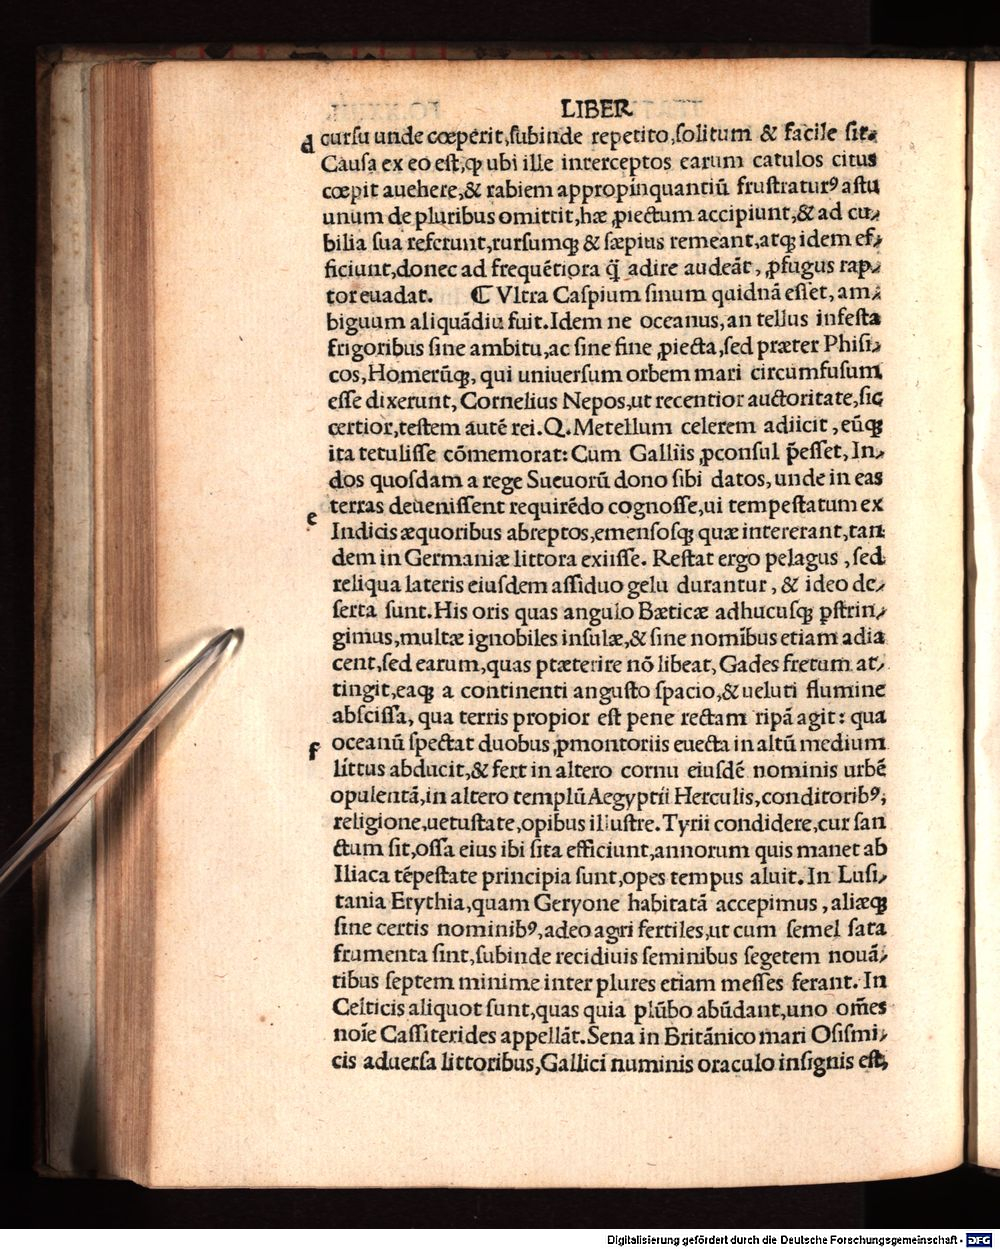 LIBER
d curſu unde cœperit,ſubinde repetito,ſolitum & facile ſit.
Cauſa ex eo eſt,ꝙ ubi ille interceptos earum catulos citus
cœpit auehere,& rabiem appropinquantiũ fruſtraturꝰ aſtu
unum de pluribus omittit,hæ ꝓiectum accipiunt,& ad cu-
bilia ſua referunt,rurſumqꝫ & ſæpius remeant,atqꝫ idem ef-
ficiunt,donec ad frequẽtiora q̃ adire audeãt, ꝓfugus rap-
tor euadat. ⁋ Vltra Caſpium ſinum quidnã eſſet, am-
biguum aliquãdiu fuit.Idem ne oceanus,an tellus infeſta
frigoribus ſine ambitu,ac ſine fine ꝓiecta,ſed præter Phiſi-
cos,Homerũqꝫ, qui uniuerſum orbem mari circumfuſum
eſſe dixerunt, Cornelius Nepos,ut recentior auctoritate,ſic
certior,teſtem autẽ rei.Q.Metellum celerem adiicit,eũqꝫ
ita tetuliſſe cõmemorat:Cum Galliis ꝓconſul p̃eſſet, In-
dos quoſdam a rege Sueuorũ dono ſibi datos, unde in eas
terras deueniſſent requirẽdo cognoſſe,ui tempeſtatum ex
e Indicis æquoribus abreptos,emenſoſqꝫ quæ intererant,tan
dem in Germaniæ littora exiiſſe. Reſtat ergo pelagus , ſed
reliqua lateris eiuſdem aſſiduo gelu durantur , & ideo de-
ſerta ſunt.His oris quas angulo Bæticæ adhucuſqꝫ p̲ſtrin-
gimus,multæ ignobiles inſulæ,& ſine nomĩbus etiam adia
cent,ſed earum,quas ptæterire nõ libeat, Gades fretum at-
tingit,eaqꝫ a continenti anguſto ſpacio,& ueluti flumine
abſciſſa, qua terris propior eſt pene rectam ripã agit: qua
f oceanũ ſpectat duobus ꝓmontoriis euecta in altũ medium
littus abducit,& fert in altero cornu eiuſdẽ nominis urbẽ
opulentã,in altero templũ Aegyptii Herculis, conditoribꝰ,
religione,uetuſtate,opibus illuſtre. Tyrii condidere,cur ſan
ctum ſit,oſſa eius ibi ſita efficiunt,annorum quis manet ab
Iliaca tẽpeſtate principia ſunt,opes tempus aluit. In Luſi-
tania Erythia,quam Geryone habitatã accepimus , aliæqꝫ
ſine certis nominibꝰ,adeo agri fertiles,ut cum ſemel ſata
frumenta ſint,ſubinde recidiuis ſeminibus ſegetem nouã-
tibus ſeptem minime inter plures etiam meſſes ferant. In
Celticis aliquot ſunt,quas quia plũbo abũdant,uno om̃es
noĩe Caſſiterides appellãt. Sena in Britãnico mari Oſiſmi-
cis aduerſa littoribus,Gallici numinis oraculo inſignis eſt,
Digitalisierung gefördert durch die Deutsche Forschungsgemeinschaft - DFG